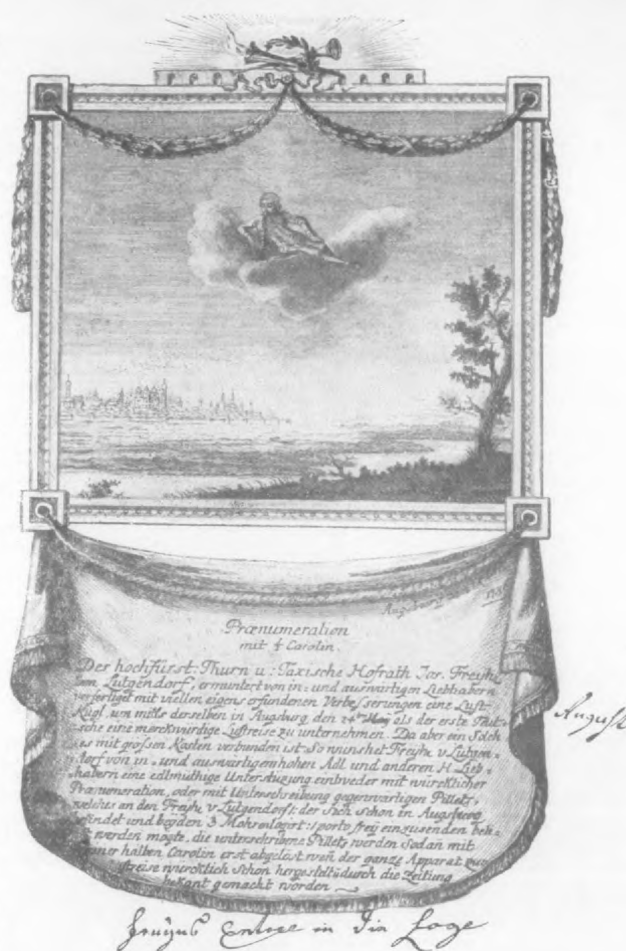 Augsburg
Prænumeration
mit ½ Carolin.
Der hochfürst: Thurn u: Taxische Hofrath Jos. Freyh:
von Lütgendorf, ermuntert von in- und auswärtigen Liebhabern
verfertiget mit viellen eigens erfundenen Verbesserungen eine Luft-
Kugl, um mitls derselben in Augsburg den 24ten May als der erste Teut-
sche eine merckwürdige Luftreise zu unternehmen. Da aber ein Solch-
es mit grosen Kosten verbunden ist. So wünshet Freyh: v. Lütgen-
dorf von in- und auswärtigem hohen Adl und anderen H. Lieb-
habern eine edlmüthige Unterstüzung entweder mit würcklicher
Prænumeration, oder mit Unterschreibung gegenwärtigen Pillets,
welche an den Freyh: v Lütgendorf: der Sich schon in Augsburg
befindet und bey den 3 Mohren logirt: porto frey einzusenden
werden mögte, die unterschribene Pillets werden Sodan mit
einer halben Carolin erst abgelöst weñ der ganze Apparat zur
würcklich schon hergestelt u durch die Zeitung
bekant gemacht worden
August
Entree in die Loge